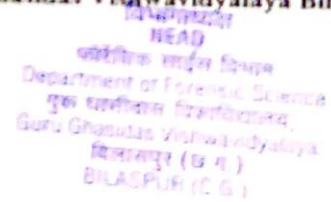 Vishwavidyalaya Bil
विभागाध्यक्ष
HEAD
फॉरेंसिक साइंस विभाग
Department of Forensic Science
गुरू घासीदास विश्वविद्यालय,
Guru Ghasidas Vishwavidyalaya
बिलासपुर (छ.ग.)
BILASPUR (C.G.)